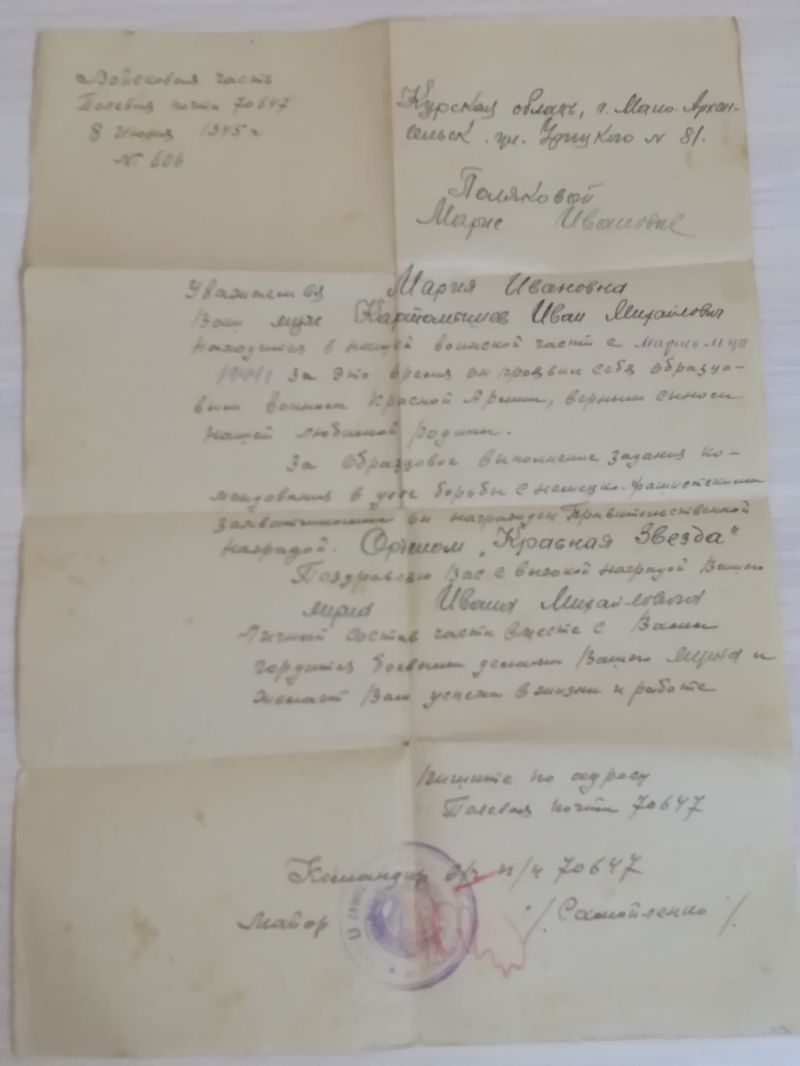 Войсковая часть
Полевая почта 70647
8 июня 1945 г.
№ 606
Курская область, г. Мало-Архан-
гельск ул. Урицкого № 81.
Поляковой
Марие Ивановне
Уважаемая Мария Ивановна
Ваш муж Иван Михайлович
находится в нашей воинской части с марта м-ца
1944 г. За это время он проявил себя образцо-
вым воином Красной Армии, верным сыном
нашей любимой родины.
За образцовое выполнение задания ко-
мандования в деле борьбы с немецко-фашистскими
захватчиками он награжден Правительственной
наградой. Орденом „Красная Звезда"
Поздравляю Вас с высокой наградой Вашего
мужа Ивана Михайловича
Личный состав части вместе с Вами
гордится боевыми делами Вашего мужа и
желает Вам успеха в жизни и работе
Пишите по адресу
Полевая почта 70647
Командир в/ч п/п 70647
Майор /Самойленко/